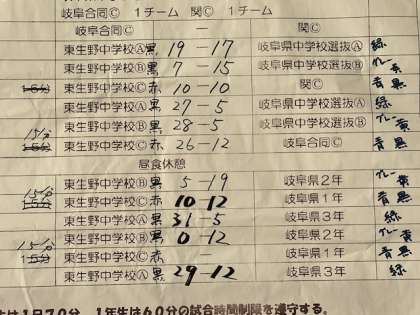 岐阜合同Ⓒ 1チーム 関Ⓒ 1チーム
岐阜合同Ⓒ — 関Ⓒ
東生野中学校Ⓐ 黒 19 - 17 岐阜県中学校選抜Ⓐ 緑
東生野中学校Ⓑ 黒 7 - 15 岐阜県中学校選抜Ⓑ グレー 黄
東生野中学校Ⓒ 赤 10 - 10 関Ⓒ 青 黒
東生野中学校Ⓐ 黒 27 - 5 岐阜県中学校選抜Ⓐ 緑
東生野中学校Ⓑ 黒 28 - 5 岐阜県中学校選抜Ⓑ グレー 黄
15分 東生野中学校Ⓒ 赤 26 - 12 岐阜合同Ⓒ 青 黒
昼食休憩
東生野中学校Ⓑ 黒 5 - 19 岐阜県2年 グレー 黄
15分 東生野中学校Ⓒ 赤 10 - 12 岐阜県1年 青 黒
東生野中学校Ⓐ 黒 31 - 5 岐阜県3年 緑
東生野中学校Ⓑ 黒 0 - 12 岐阜県2年 グレー 黄
15分 東生野中学校Ⓒ 赤 — 岐阜県1年 青 黒
東生野中学校Ⓐ 黒 29 - 12 岐阜県3年 緑
生は1日70分、1年生は60分の試合時間制限を遵守する。